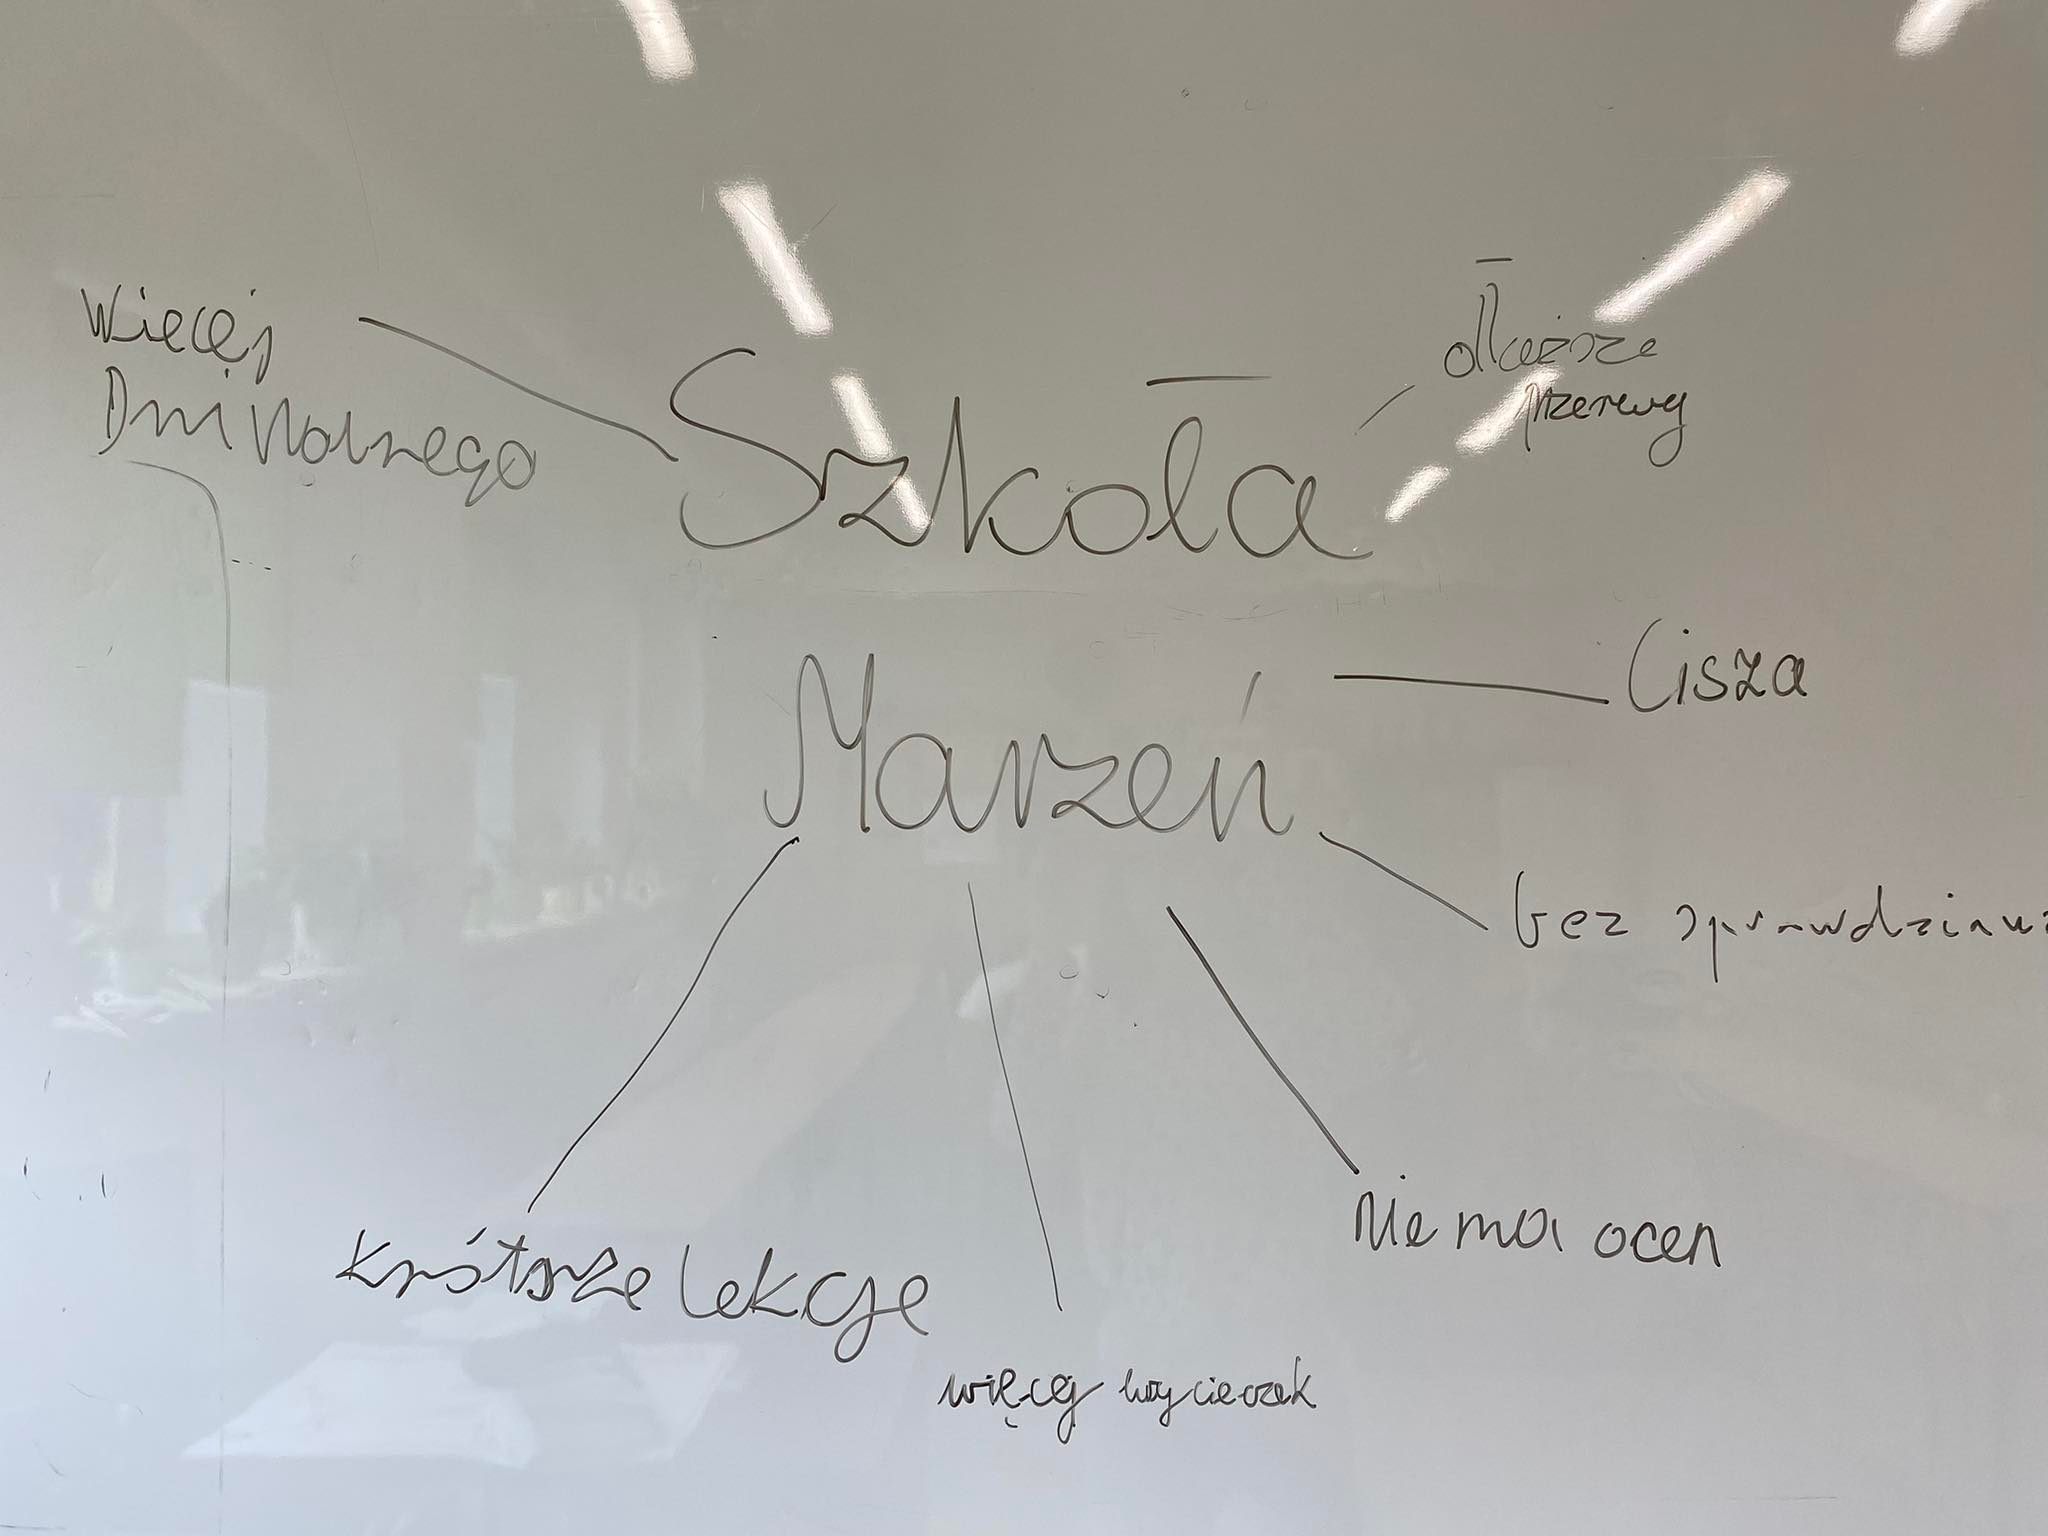 Więcej
Dni Wolnego
dłuższe
przerwy
Szkoła
Marzeń
Cisza
bez
Nie ma ocen
Krótsze lekcje
więcej wycieczek